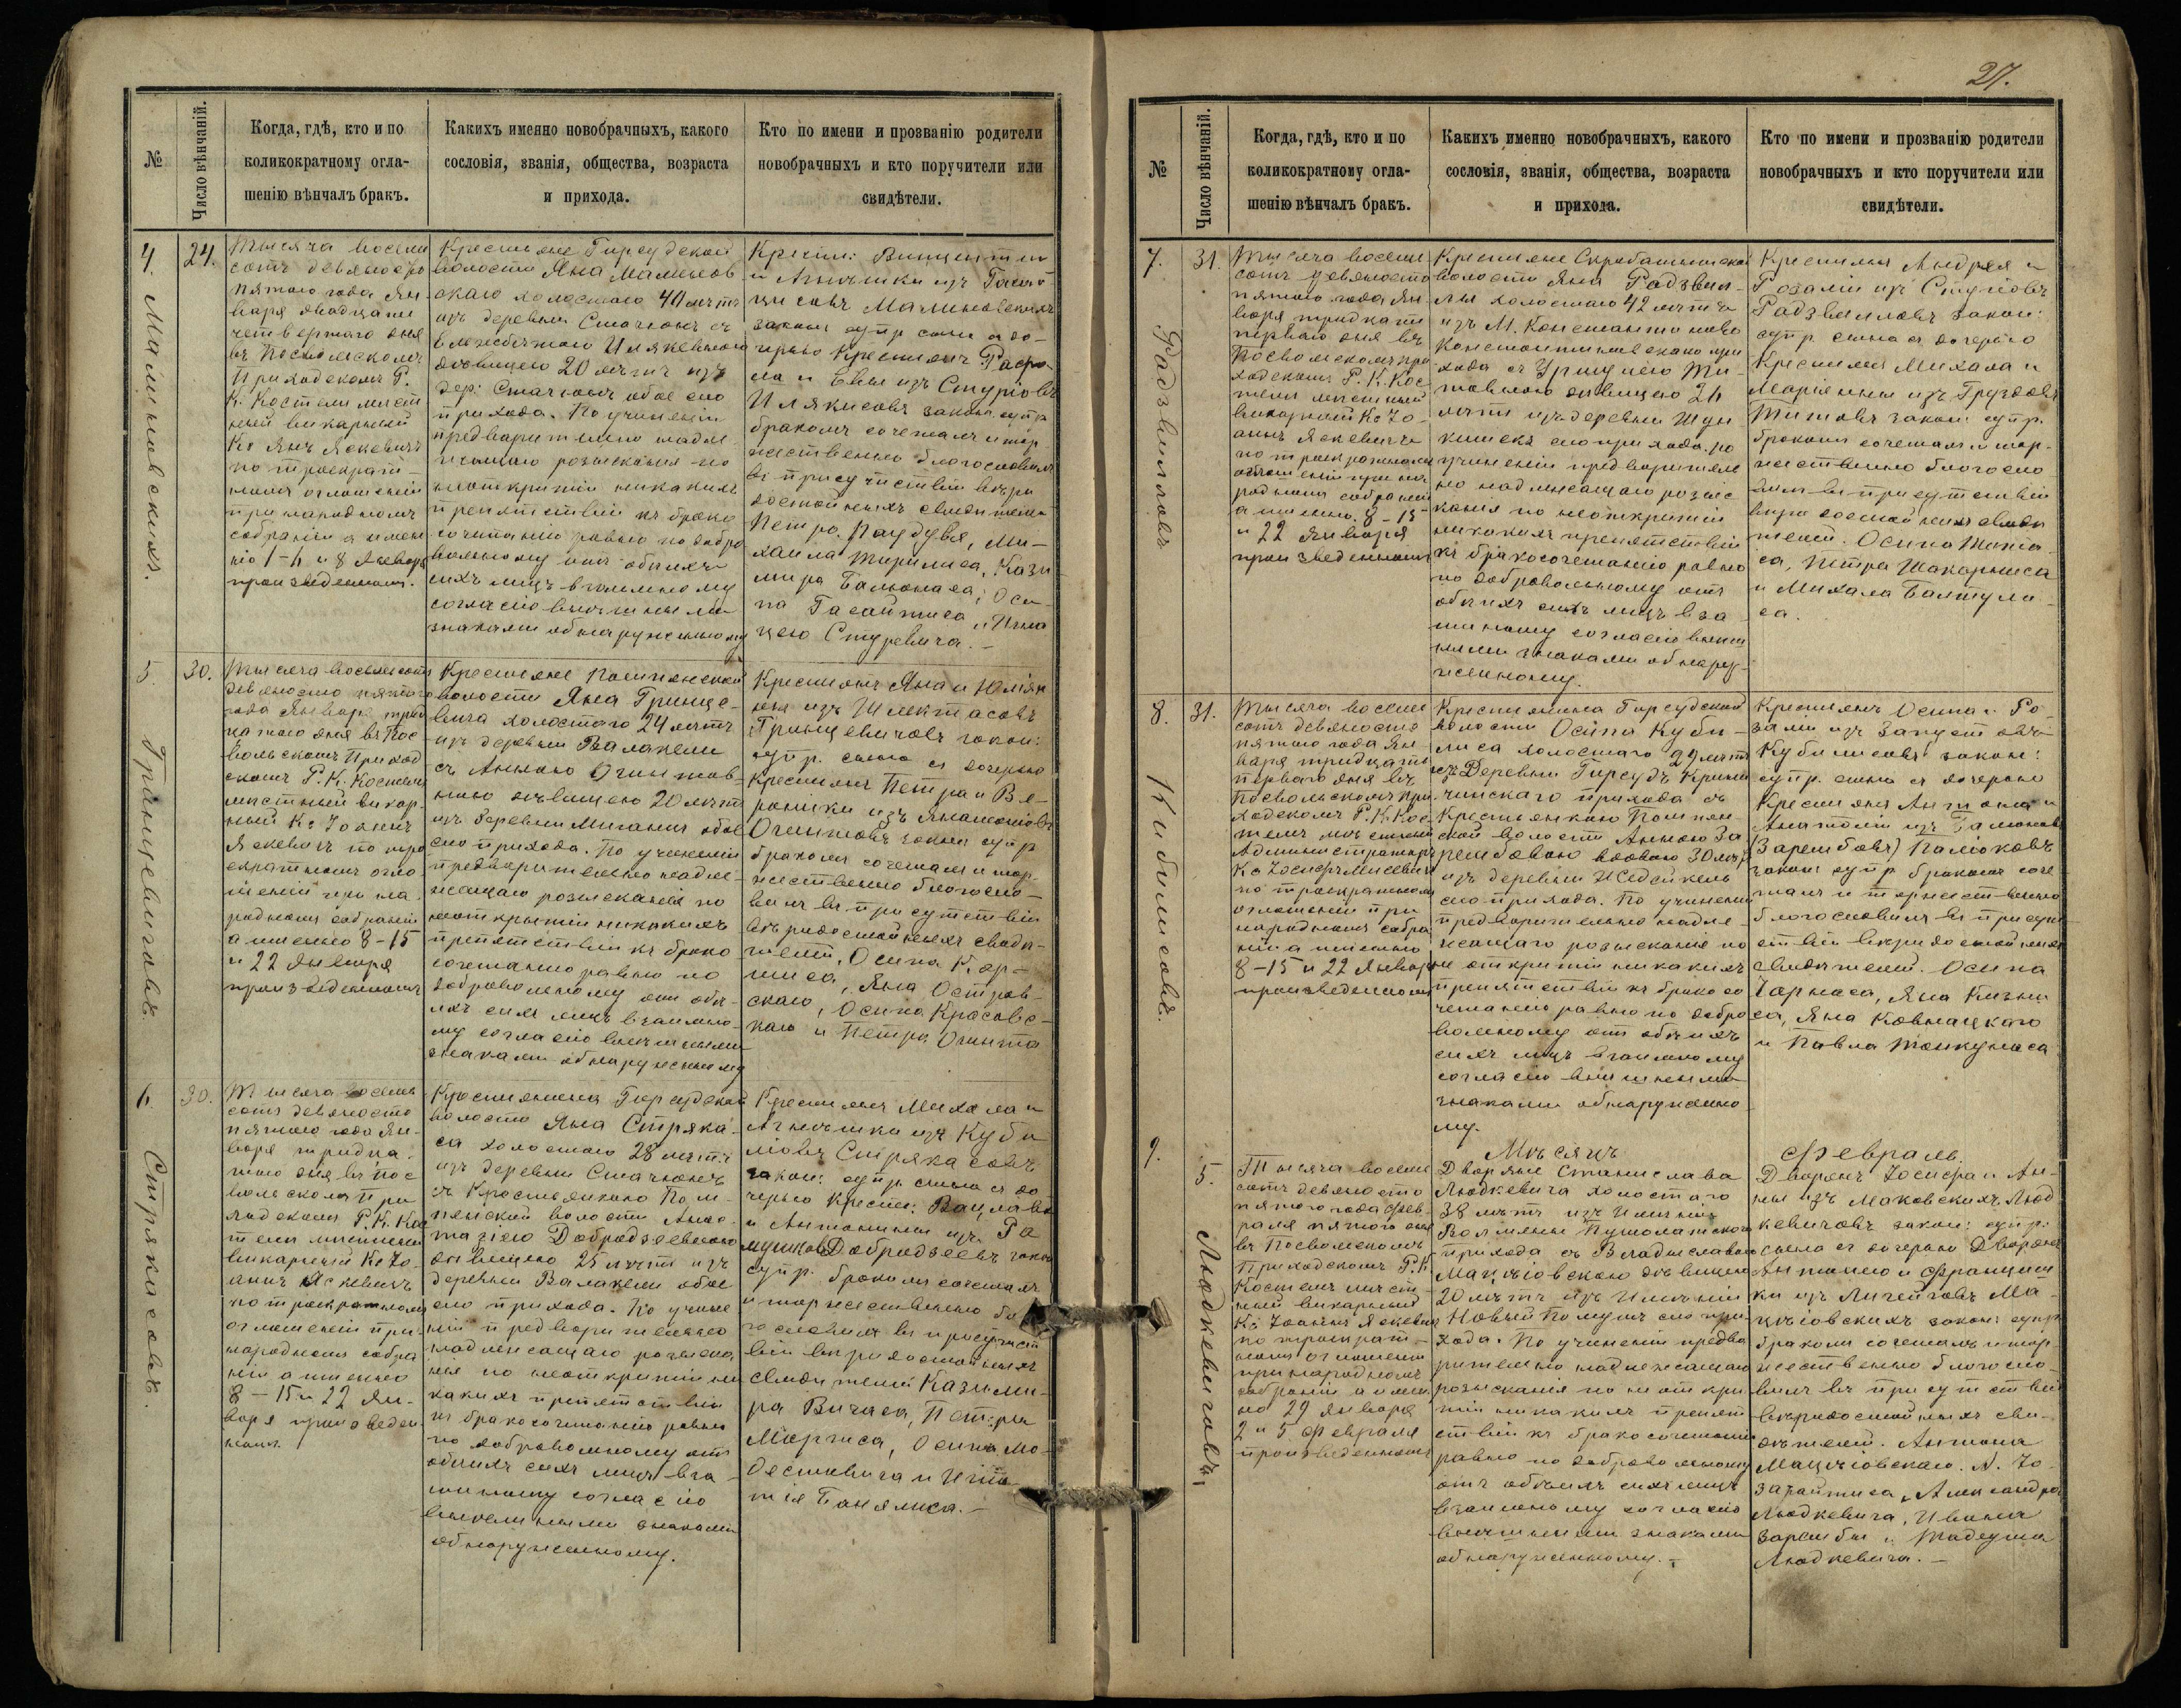 27.
№
Число вѣнчаній.
Когда, гдѣ, кто и по
коликократному огла-
шенію вѣнчалъ бракъ.
Какихъ именно новобрачныхъ, какого
сословія, званія, общества, возраста
и прихода.
Кто по имени и прозванію родители
новобрачныхъ и кто поручители или
свидѣтели.
4.
24.
Малиновскихъ.
Тысяча восемь
сотъ девяносто
пятого года Ян
варя двадцать
четвертаго дня
въ Посвольскомъ
Приходскомъ Р.
К. Костелѣ мѣст
ный викарный
Кс Янъ Яскевичъ
по троекрат-
номъ оглашеніи
при народномъ
собраніи а имен
но 1-6 и 8 Января
произведенномъ.
Крестьяне Гирсудской
волости Яна Малинов
скаго холостаго 40 лѣтъ
изъ деревни Стачюнъ съ
дѣвицею 20 лѣтъ изъ
дер: Стачюнъ обое сего
прихода. По учиненіи
предварительно надле
жащаго розысканія по
неоткрытіи никакихъ
препятствій къ брако
сочетанію равно по добро
вольному отъ обѣихъ
сихъ лицъ взаимному
согласію внѣшными
знаками обнаруженному
Крестьян: Винцентія
и Агнешки изъ
Малиновскихъ
закон супр сына съ до-
черью Крестьянъ
и Евы изъ
закон. супр
бракомъ сочеталъ и тор
жественно благословилъ
въ присутствіи вѣро
достойныхъ свидѣтелей
Петра Паудувя, Ми-
хаила Кази
мира Осипа
и Игна
цего Стуревича.-
5.
30.
Гринцевичовъ.
Тысяча восемьсотъ
девяносто пятаго
года Января трид
цатаго дня въ Пос
вольскомъ Приход
скомъ Р. К. Костелѣ
мѣстный викар.
ный Кс Іоаннъ
Яскевичъ по тро
екратномъ огло
шеніи при на
родномъ собраніи
а именно 8-15
и 22 Января
произведенномъ
Крестьяне Помпянской
волости Яна Гринце-
вича холостаго 24 лѣтъ
изъ деревни Валакели
съ Анною Огинтов-
ною дѣвицею 20 лѣтъ
изъ деревни Миганцъ обое
сего прихода. По учиненіи
предварительно надле-
жащаго розысканія по
неоткрытіи никакихъ
препятствій къ брако
сочетанію равно по
добровольному отъ обѣ-
ихъ сихъ лицъ взаимно-
му согласію внѣшными
знаками обнаруженному
Крестьянъ Яна и Юліян
ны изъ Шлектасовъ
Гринцевичовъ закон:
супр. сына съ дочерью
Крестьянъ Петра и Ве-
роники изъ
Огинтовъ закон супр
бракомъ сочеталъ и тор-
жественно благосло-
вилъ въ присутствіи
вѣродостойныхъ свидѣ-
телей, Осипа Кор-
Яна Остров-
скаго, Осипа Красовс-
каго и Петра Огинта
6.
30.
Стрякасовъ.
Тысяча восемь
сотъ девяносто
пятаго года Ян-
варя тридца-
таго дня въ Пос
вольскомъ При
ходскомъ Р. К. Кос
телѣ мѣстный
викарный Кс Іо-
аннъ Яскевичъ
по троекратномъ
оглашеніи при
народномъ собра
ніи а именно
8-15 и 22 Ян-
варя произведен
номъ.
Крестьянина Гирсудской
волости Яна Стряка-
са холостаго 28 лѣтъ
изъ деревни Стачюнъ
съ Крестьянкою Помпянской
волости Анас-
тазіею Добродзеевною
дѣвицею 25 лѣтъ изъ
деревни Валакели обое
сего прихода. По учине
ніи предварительно
надлежащаго розыска
нія по неоткрытіи ни
какихъ препятствій
къ бракосочетанію равно
по добровольному отъ
обѣихъ сихъ лицъ вза-
имному согласію
внѣшными знаками
обнаруженному.
Крестьянъ Михала и
Агнешки изъ Куби
ліовъ Стрякасовъ
закон: супр. сына съ до
черью Крестьян: Вацлава
и Антонины изъ
Добродзеевъ закон
супр. бракомъ сочеталъ
и торжественно бла
гословилъ въ присутст
віи вѣродостойныхъ
свидѣтелей Казими-
ра Вичаса, Петра
Осипа Мо-
дестовича и
7.
31.
Радзвиловъ
Тысяча восемь
сотъ девяносто
пятого года Ян
варя тридцать
перваго дня въ
Посвольскомъ при
ходскомъ Р. К. Кос
телѣ мѣстный
викарный Кс Іо-
аннъ Яскевичъ
по троекратномъ
оглашеніи при на
родномъ собраніи
а именно. 8-15
и 22 Января
произведенномъ
Крестьяне Скробатишской
волости Яна Радзвил-
лы холостаго 42 лѣтъ
изъ М. Константиново
Константиновскаго при
хода съ Ти-
товною дѣвицею 24
лѣтъ изъ деревни
сего прихода. по
учиненіи предваритель
но надлежащаго розыс
канія по неоткрытіи
никакихъ препятствій
къ бракосочетанію равно
по добровольному отъ
обѣихъ сихъ лицъ вза
имному согласію внѣш
ними знаками обнару-
женному.
Крестьянъ Андрея и
Розаліи изъ
Радзвилловъ закон:
супр. сына съ дочерью
Крестьянъ Михала и
Маріянны изъ Груздовъ
Титовъ закон: супр.
бракомъ сочеталъ и тор-
жественно благосло
вилъ въ присутствіи
вѣродостойныхъ свидѣ
телей. Осипа
Петра
и Михала Балтуш-
са.
8.
31.
Кибилисовъ.
Тысяча восемь
сотъ девяносто
пятаго года Ян
варя тридцать
перваго дня въ
Посвольскомъ При
ходскомъ Р. К. Кос
телѣ мѣстный
Администраторъ
Кс Іосифъ
по троекратномъ
оглашеніи при
народномъ собра
ніи а именно
8-15 и 22 Января
произведенномъ
Крестьянина Гирсудской
волости Осипа Куби-
лиса холостаго 29 лѣтъ
изъ Деревни Гирсудъ Крин
чинскаго прихода съ
Крестьянкою Помпян-
ской волости Анною За
рембовою вдовою 30 лѣтъ
изъ деревни
сего прихода. По учиненіи
предварительно надле-
жащаго розысканія по
не открытіи никакихъ
препятствій къ брако со
четанію равно по добро
вольному отъ обѣихъ
сихъ лицъ взаимному
согласію внѣшными
знаками обнаруженно
му.
Крестьянъ Осипа и Ро
заліи изъ
Кубилисовъ закон:
супр. сына съ дочерью
Крестьянъ Антона и
Анатоліи изъ
(Зарембовъ)
закон супр бракомъ соче
талъ и торжественно
благословилъ въ присут
ствіи вѣродостойныхъ
свидѣтелей. Осипа
Чарнаса, Яна
Яна Ковнацкаго
и Павла
Мѣсяцъ Февраль.
9.
5.
Людкевичовъ
Тысяча восемь
сотъ девяносто
пятого года Фев-
раля пятого дня
въ Посвольскомъ
Приходскомъ Р. К
Костелѣ мѣст
ный викарный
Кс Іоаннъ Яскевичъ
по троекрат-
номъ оглашеніи
при народномъ
собраніи а имен
но 29 Января
2 и 5 Февраля
произведенномъ
Дворяне Станислава
Людкевича холостаго
38 лѣтъ изъ Имѣнія
прихода съ Владиславою
Мацѣіовскою дѣвицею
20 лѣтъ изъ Имѣнія
Новый сего при
хода. По учиненіи предва
рительно надлежащаго
розысканія по неоткры
тіи никакихъ препят
ствій къ бракосочетанію
равно по добровольному
отъ обѣихъ сихъ лицъ
взаимному согласію
внѣшными знаками
обнаруженному.-
Дворянъ Іосифа и Ан-
ны изъ Маковскихъ Люд
кевичовъ закон: супр.
сына съ дочерью Дворянъ
Антонего и Францишки
изъ Ма-
цѣіовскихъ закон супр
бракомъ сочеталъ и тор
жественно благосло-
вилъ въ присутствіи
вѣродостойныхъ сви-
дѣтелей. Антона
Мацѣіовскаго.
Александра
Людкевича, Ивана
Зарембы и Тадеуша
Людкевича.-